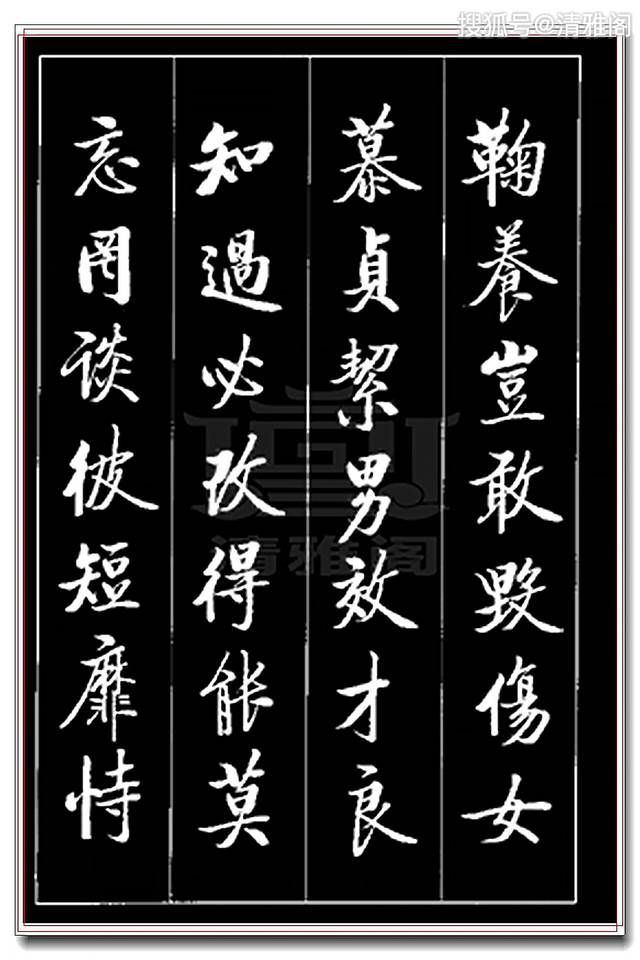 搜狐号@清雅阁
鞠養豈敢毀傷女
慕貞絜男效才良
知過必改得能莫
忘罔談彼短靡恃
清雅阁